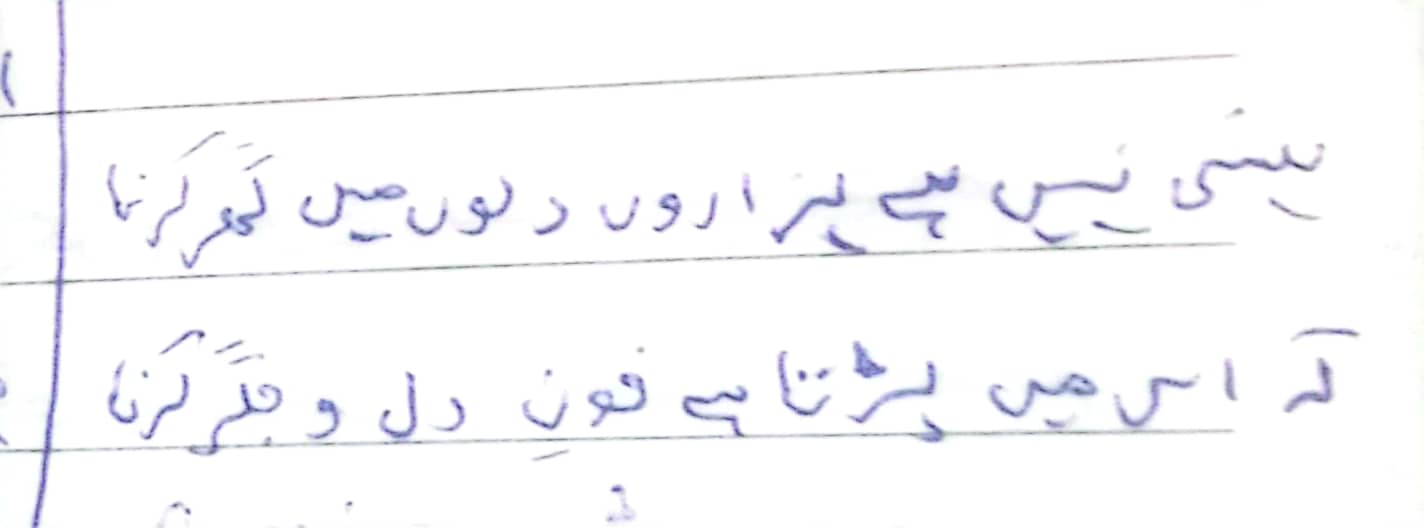 ہنسی نہیں ہے ہزاروں دلوں میں گھر کرنا
کہ اس میں پڑتا ہے خونِ دل و جگر کرنا